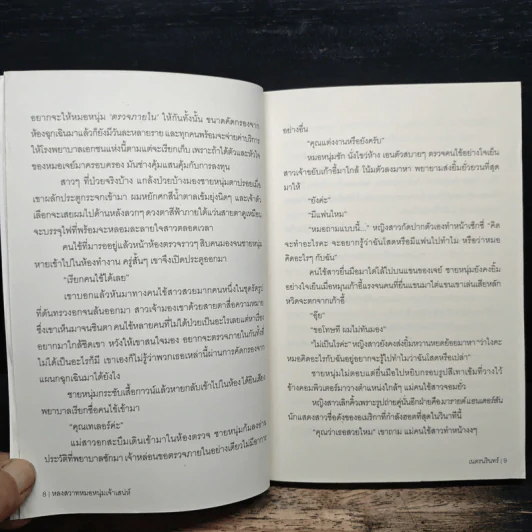 อยากจะให้หมอหนุ่ม 'ตรวจภายใน' ให้กันทั้งนั้น ขนาดคัดกรองจาก
ห้องฉุกเฉินมาแล้วก็ยังมีวันละหลายราย และทุกคนพร้อมจะจ่ายค่าบริการ
ให้โรงพยาบาลเอกชนแห่งนี้ตามแต่จะเรียกเก็บ เพราะถ้าได้ตัวและหัวใจ
ของหมอเจย์มาครอบครอง มันช่างคุ้มแสนคุ้มกับการลงทุน
สาวๆ ที่ป่วยจริงบ้าง แกล้งป่วยบ้างมองชายหนุ่มตาปรอยเมื่อ
เขาผลักประตูกระจกเข้ามา ผมหยักศกสีน้ำตาลเข้มยุ่งนิดๆ และเจ้าตัว
เลือกจะเสยผมไปด้านหลังลวกๆ ดวงตาสีฟ้าภายใต้แว่นสายตาดูเหมือน
จะบรรจุไฟที่พร้อมจะหลอมละลายใจสาวตลอดเวลา
คนไข้ที่มารออยู่แล้วหน้าห้องตรวจราวๆ สิบคนมองจนชายหนุ่ม
หายเข้าไปในห้องทำงาน ครู่สั้นๆ เขาจึงเปิดประตูออกมา
"เรียกคนไข้ได้เลย"
เขาบอกแล้วหันมาทางคนไข้สาวสวยมากคนหนึ่งในชุดรัดรูป
ที่ดันทรวงอกจนล้นออกมา สาวเจ้ามองเขาด้วยสายตาสื่อความหมาย
ซึ่งเขาเห็นมาจนชินตา คนไข้หลายคนที่ไม่ได้ป่วยเป็นอะไรเลยแค่หาเรื่อง
อยากมาใกล้ชิดเขา หวังให้เขาสนใจมอง อยากจะตรวจภายในกันทั้งที่
ไม่ได้เป็นอะไรก็มี เขาเองก็ไม่รู้ว่าพวกเธอเหล่านี้ผ่านการคัดกรองจาก
แผนกฉุกเฉินมาได้ยังไง
ชายหนุ่มกระชับเสื้อกาวน์แล้วหายกลับเข้าไปในห้อง ได้ยินเสียง
พยาบาลเรียกชื่อคนไข้เข้ามา
"คุณเทเลอร์ค่ะ"
แม่สาวอกสะบึมเดินเข้ามาในห้องตรวจ ชายหนุ่มก้มลงอ่าน
ประวัติที่พยาบาลซักมา เจ้าหล่อนขอตรวจภายในอย่างเดียวไม่มีอาการ
8 | หลงสวาทหมอหนุ่มเจ้าเสน่ห์
อย่างอื่น
"คุณแต่งงานหรือยังครับ"
หมอหนุ่มซัก นั่งไขว่ห้าง เอนตัวสบายๆ ตรวจคนไข้อย่างใจเย็น
สาวเจ้าขยับเก้าอี้มาใกล้ โน้มตัวลงมาหา พยายามส่งยิ้มยั่วยวนที่สุด
มาให้
"ยังค่ะ"
"มีแฟนไหม"
"หมอถามแบบนี้..." หญิงสาวกัดปากตัวเองทำหน้าเซ็กซี่ "คิด
จะทำอะไรคะ จะอยากรู้ว่าฉันโสดหรือมีแฟนไปทำไม หรือว่าหมอ
คิดอะไรๆ กับฉัน"
คนไข้สาวยื่นมือมาไต่ไล้ไปบนแขนของเจย์ ชายหนุ่มยังคงยิ้ม
อย่างใจเย็นเมื่อหมุนเก้าอี้แรงจนคนที่ยื่นแขนมาไต่แขนเขาเล่นเสียหลัก
หวิดจะตกจากเก้าอี้
"อุ๊ย"
"ขอโทษที ผมไม่ทันมอง"
"ไม่เป็นไรค่ะ" หญิงสาวยังคงส่งยิ้มหวานหยดย้อยมาหา "ว่าไงคะ
หมอคิดอะไรกับฉันอยู่อยากจะรู้ไปทำไมว่าฉันโสดหรือเปล่า"
ชายหนุ่มไม่ตอบแต่ยื่นมือไปหยิบกรอบรูปสีเทาเข้มที่วางไว้
ข้างคอมพิวเตอร์มาวางตำแหน่งใกล้ๆ แม่คนไข้สาวจอมยั่ว
หญิงสาวเลิกคิ้วเพราะรูปถ่ายคู่นั้นอีกฝ่ายคือมารายห์แอนเดอร์สัน
นักแสดงสาวชื่อดังของอเมริกาที่กำลังฮอตที่สุดในวินาทีนี้
"คุณว่าเธอสวยไหม" เขาถาม แม่คนไข้สาวทำหน้างงๆ
เนตรนรินทร์ | 9